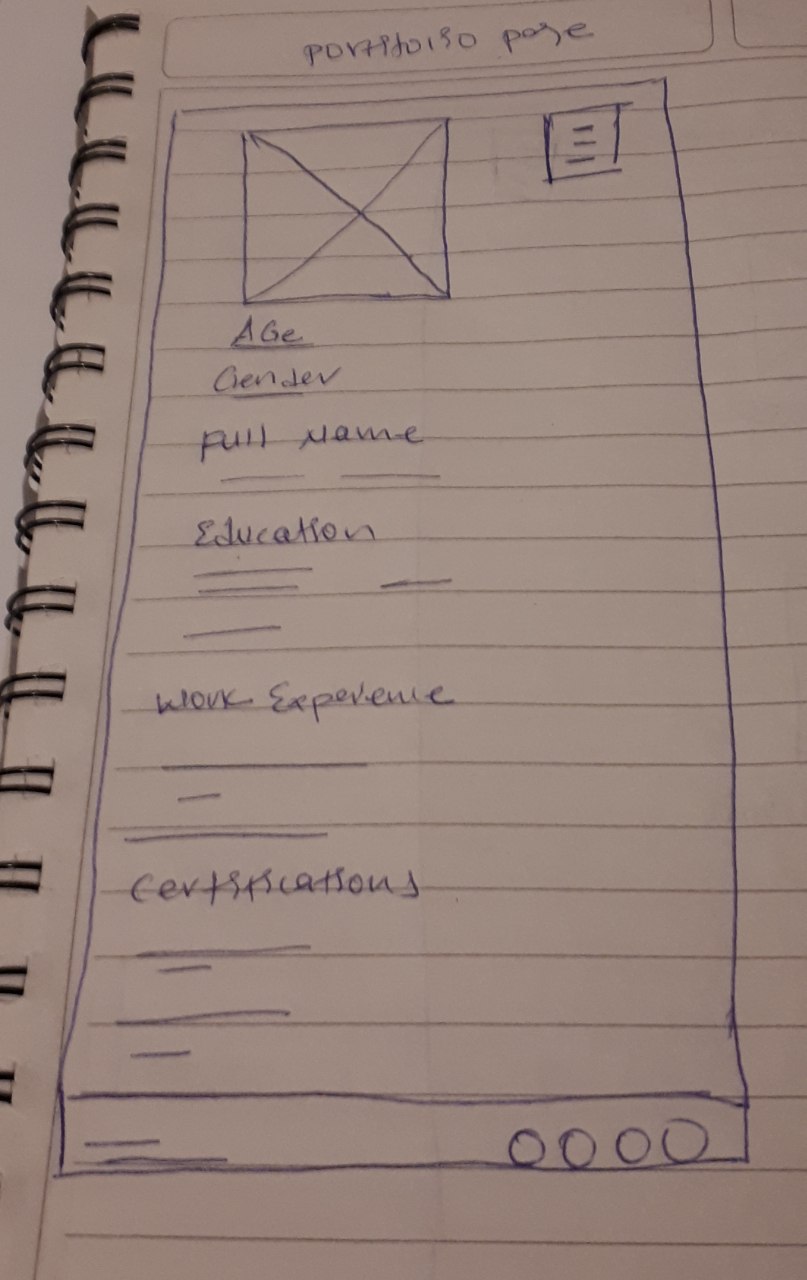 portfolio page
AGe
Gender
Full Name
Education
Work Experience
Certifications